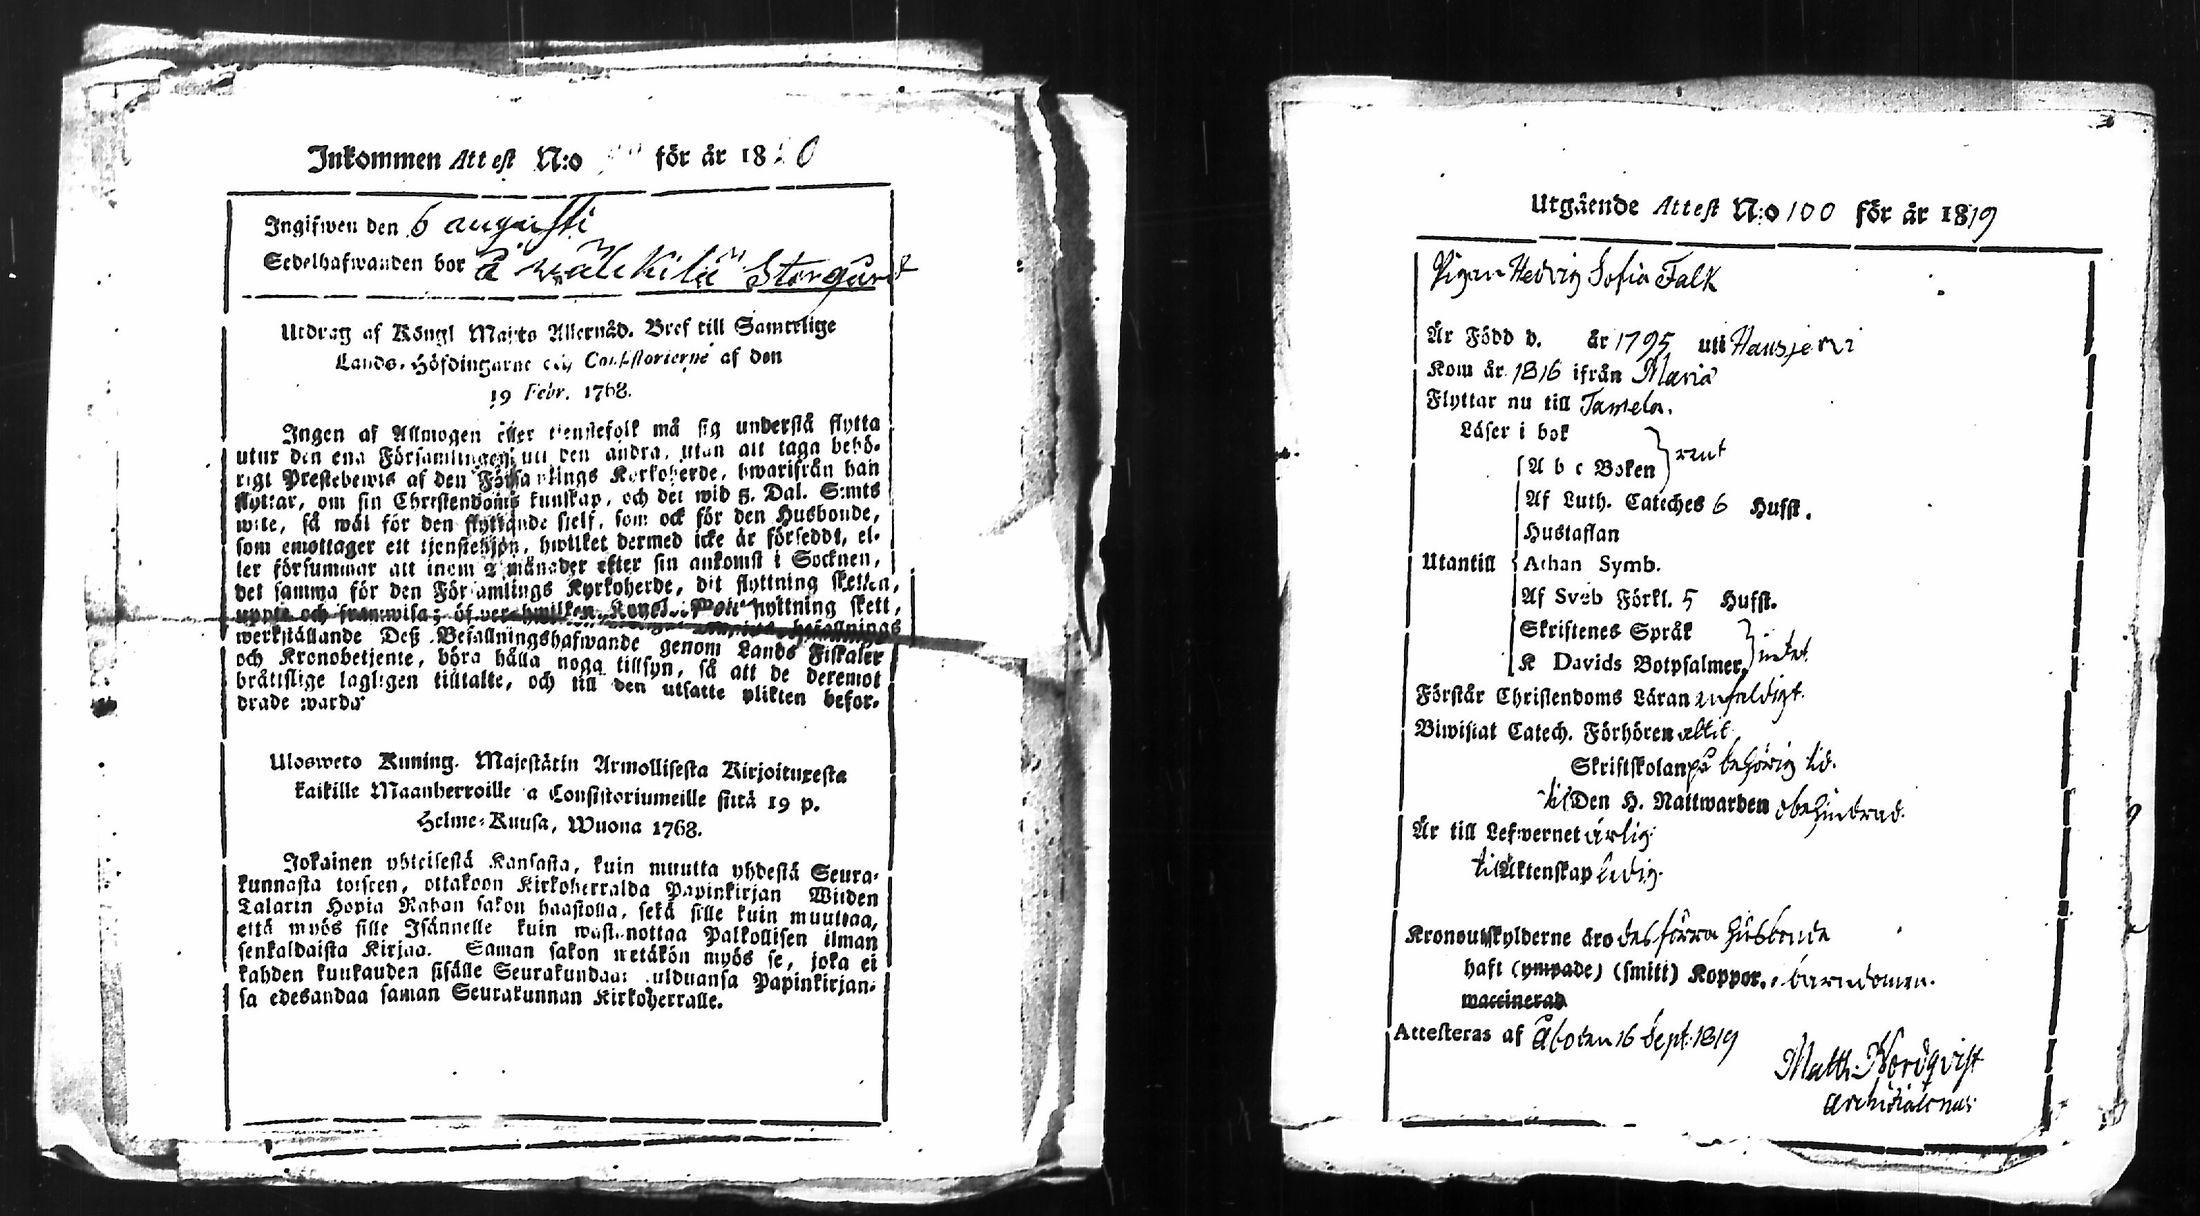 Inkommen Attest N:o för år 18 0
Ingifwen den 6 augusti
Sedelhafwanden bor å Wälikilä Storgård
Utdrag af Kongl Maj:ts Allernåd. Bref till Samtelige
Lands-Höfdingarne och Consistorierne af den
19 Febr. 1768.
Ingen af Allmogen eller tienstefolk må sig understå flytta
utur den ena Församlingen uti den andra, utan att taga behö-
rigt Prestebewis af den Församlings Kyrkoherde, hwarifrån han
flyttar, om sin Christendoms kunskap, och det wid 5. Dal. S:mts
wite, så wäl för den flyttande sielf, som ock för den Husbonde,
som emottager ett tjenstehjon, hwilket dermed icke är förseddt, el-
ler försummar att inom 2 månader efter sin ankomst i Socknen,
det samma för den Församlings Kyrkoherde, dit flyttning skett,
uppte och framwisa; öfver hwilken Kongl. flyttning skett,
befallnings
werkställande Deß Befallningshafwande genom Lands Fiskaler
och Kronobetjente, böra hålla noga tillsyn, så att de deremot
bråttslige lagligen tilltalte, och till den utsatte plikten befor-
drade warda
Ulosweto Kuning. Majestätin Armollisesta Kirjoituxesta
kaikille Maanherroille ja Consistoriumeille siitä 19 p.
Helme-Kuusa, Wuona 1768.
Jokainen yhteisestä Kansasta, kuin muutta yhdestä Seura-
kunnasta toiseen, ottakoon Kirkoherralda Papinkirjan Wiiden
Talarin Hopia Rahan sakon haastolla, sekä sille kuin muuttaa,
että myös sille Isännelle kuin wastanottaa Palkollisen ilman
senkaldaista Kirjaa. Saman sakon wetäkön myös se, joka ei
kahden kuukauden sisälle Seurakundaan tulduansa Papinkirjan-
sa edesandaa saman Seurakunnan Kirkoherralle.
Utgående Attest N:o 100 för år 1819
Pigan Hedvig Sofia Falk
Är Född d. år 1795 uti Hausjervi
Kom år 1816 ifrån Maria
Flyttar nu till Tamela.
Läser i bok
A b c Boken } rent
Af Luth. Cateches 6 Hufst.
Hustaflan
Utantill { Athan Symb.
Af Sveb Förkl. 5 Hufst.
Skriftenes Språk
K Davids Botpsalmer, } intet
Förstår Christendoms Läran enfaldigt.
Biwistat Catech. Förhören altid
Skriftskolan på behörig tid.
til Den H. Nattwarden obehindrad.
Är till Lefwernet ärlig.
til Äktenskap ledig.
Kronoutskylderne äro des förra husbonde
haft (ympade) (smitt) Koppor, i barndomen.
waccinerad
Attesteras af Åbo den 16 Sept. 1819
Matth. Nordqvist
Archidiaconus